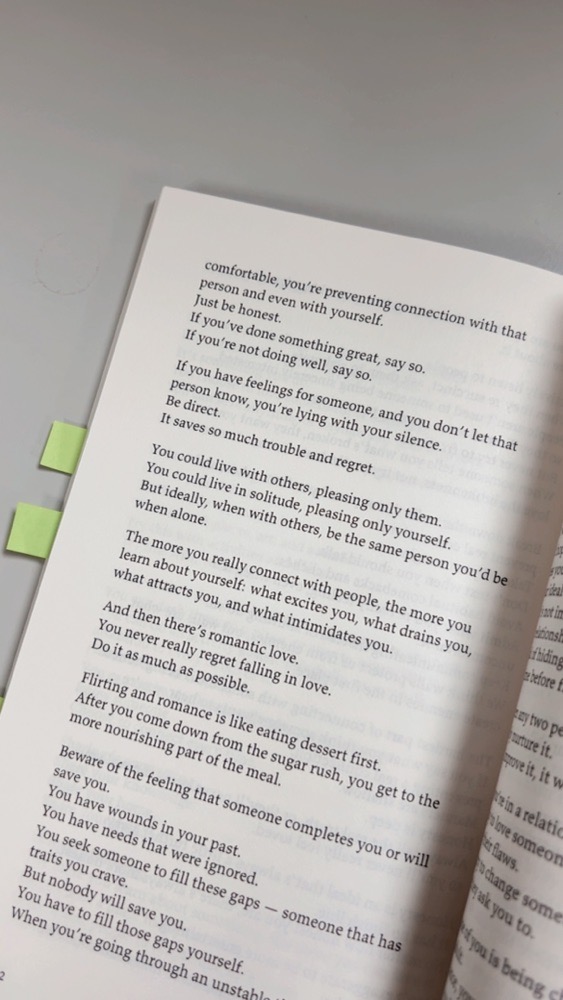 comfortable, you're preventing connection with that
person and even with yourself.
Just be honest.
If you've done something great, say so.
If you're not doing well, say so.
If you have feelings for someone, and you don't let that
person know, you're lying with your silence.
Be direct.
It saves so much trouble and regret.
You could live with others, pleasing only them.
You could live in solitude, pleasing only yourself.
But ideally, when with others, be the same person you'd be
when alone.
The more you really connect with people, the more you
learn about yourself: what excites you, what drains you,
what attracts you, and what intimidates you.
And then there's romantic love.
You never really regret falling in love.
Do it as much as possible.
Flirting and romance is like eating dessert first.
After you come down from the sugar rush, you get to the
more nourishing part of the meal.
Beware of the feeling that someone completes you or will
save you.
You have wounds in your past.
You have needs that were ignored.
You seek someone to fill these gaps — someone that has
traits you crave.
But nobody will save you.
You have to fill those gaps yourself.
When you're going through an unstable
2
any two pe
nurture it.
in a relatio
love someon
flaws.
to change some
ask you to.
of you is being